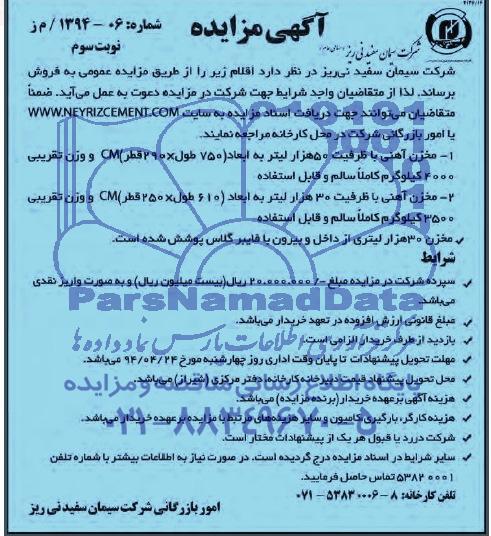 ۹۴۰۴۱۶
آگهی مزایده
شماره: ۰۶ - ۱۳۹۴ / م ز
نوبت سوم
شرکت سیمان سفید نی ریز (سهامی عام)
شرکت سیمان سفید نی‌ریز در نظر دارد اقلام زیر را از طریق مزایده عمومی به فروش
برساند. لذا از متقاضیان واجد شرایط جهت شرکت در مزایده دعوت به عمل می‌آید. ضمناً
متقاضیان می‌توانند جهت دریافت اسناد مزایده به سایت WWW.NEYRIZCEMENT.COM
یا امور بازرگانی شرکت در محل کارخانه مراجعه نمایند.
۱- مخزن آهنی با ظرفیت ۵۰هزار لیتر به ابعاد(۷۵۰ طول×۲۹۰قطر)CM و وزن تقریبی
۴۰۰۰ کیلوگرم کاملاً سالم و قابل استفاده
۲- مخزن آهنی با ظرفیت ۳۰ هزار لیتر به ابعاد (۶۱۰ طول×۲۵۰قطر)CM و وزن تقریبی
۳۵۰۰ کیلوگرم کاملاً سالم و قابل استفاده
✓ مخزن ۳۰هزار لیتری از داخل و بیرون با فایبر گلاس پوشش شده است.
شرایط
✓ سپرده شرکت در مزایده مبلغ -/۲۰.۰۰۰.۰۰۰ ریال(بیست میلیون ریال) و به صورت واریز نقدی
می‌باشد.
✓ مبلغ قانونی ارزش افزوده در تعهد خریدار می‌باشد.
✓ بازدید از طرف خریدار الزامی است.
✓ مهلت تحویل پیشنهادات تا پایان وقت اداری روز چهارشنبه مورخ ۹۴/۰۴/۲۴ می‌باشد.
✓ محل تحویل پیشنهاد قیمت دبیرخانه کارخانه، دفتر مرکزی (شیراز) می‌باشد.
✓ هزینه آگهی بر عهده خریدار(برنده مزایده) می‌باشد.
✓ هزینه کارگر، بارگیری کامیون و سایر هزینه‌های مرتبط با مزایده بر عهده خریدار می‌باشد.
✓ شرکت در رد یا قبول هر یک از پیشنهادات مختار است.
✓ سایر شرایط در اسناد مزایده درج گردیده است. در صورت نیاز به اطلاعات بیشتر با شماره تلفن
۵۳۸۲ ۰۰۰۱ تماس حاصل فرمایید.
تلفن کارخانه: ۸ - ۵۳۸۳۰۰۰۶ - ۰۷۱
امور بازرگانی شرکت سیمان سفید نی ریز
ParsNamadData
فن آوری اطلاعات پارس نماد داده ها
پایگاه اطلاع رسانی مناقصه و مزایده
۰۲۱-۸۸۳۴۹۶۷۰-۵